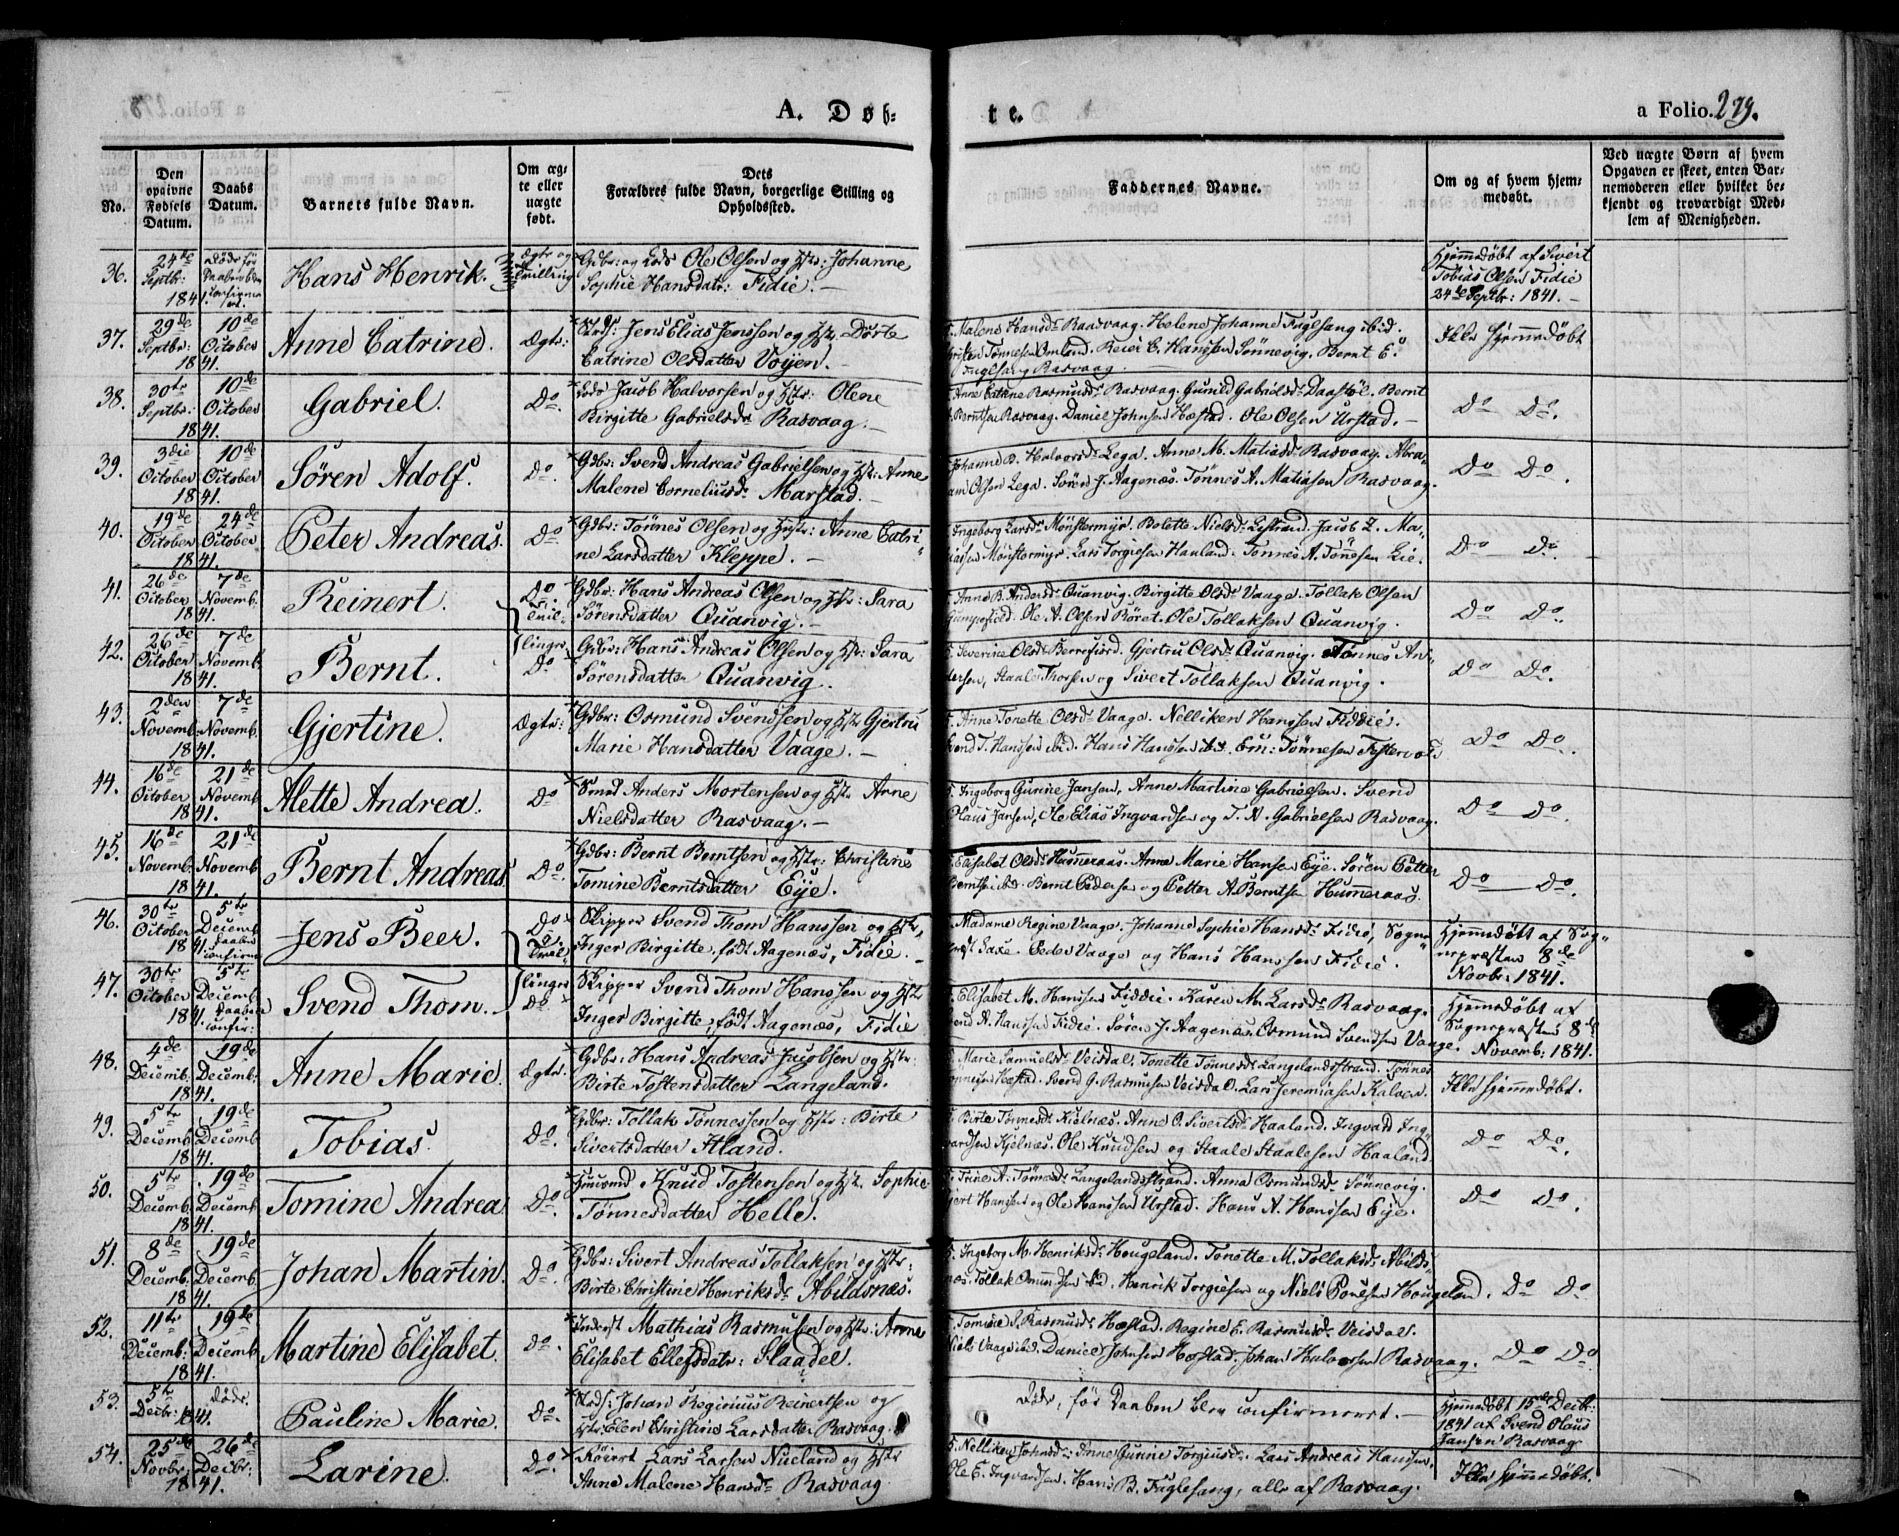 A. Døb-
te.
a Folio. 279.
No.
Den opgivne Fødsels Datum.
Daabs Datum.
Barnets fulde Navn.
Om ægte eller uægte født.
Dets Forældres fulde Navn, borgerlige Stilling og Opholdssted.
Faddernes Navne.
Om og af hvem hjemmedøbt.
Ved uægte Børn af hvem Opgaven er skeet, enten Barnemoderen eller hvilket bekjendt og troværdigt Medlem af Menigheden.
36. 24de Septbr: 1841. Hans Henrik. Ægte og Tvilling
Gdbr: og Lods Ole Olsen og Hstr: Johanne
Sophie Hansdatr: Fidie. —
Hjemmedøbt af Sivert
Tobias Olsen Fidie
24de Septbr: 1841. —
37. 29de Septbr: 1841. 10de October Anne Catrine. Ægte:
Jens Elias Jenssen og Hstr. Dorte
Catrine Olsdatter Vojen. —
Malene Hansdr Raasvaag. Helene Johanne Fuglesang ibid.
Tønnesen Omland. Reier C. Hanssen Sønnevig. Bernt E.
Fuglesang Rasvaag.
Ikke Hjemmedøbt
38. 30te Septbr: 1841. 10de October Gabriel. Do.
Lods Jacob Halvorsen og Hstr: Olene
Birgitte Gabrielsdr Rasvaag. —
Anne Catrine Rasmusdr Rasvaag. Gunild Gabrielsdr Daastøl. Bernt
Berntsen Rasvaag. Daniel Johnsen Hæstad. Ole Olsen Urstad. —
Do Do.
39. 3die October 1841. 10de October Søren Adolf. Do.
Gdbr: Svend Andreas Gabrielsen og Hstr: Anne
Malene Corneliusdr Marstad. —
Johanne B. Halvorsdr Lega. Anne M. Matiasdr Rasvaag. Abra-
am Olsen Lega. Søren J. Aagenæs. Tønnes A. Matiasen Rasvaag.
Do Do.
40. 19de October 1841. 24de October Peter Andreas. Do
Gdbr: Tønnes Olsen og Hstr: Anne Catri-
ne Larsdatter Kleppe. —
Ingeborg Larsdr Mønstermyr. Bolette Nielsdr Lestrand. Jacob Z. Ma-
tiasen Mønstermyr. Lars Torgiesen Hauland. Tønnes A. Tønesen Lie.
Do Do.
41. 26de October 1841. 7de Novemb. Reinert. Do Tvil-
Gdbr: Hans Andreas Olsen og Hstr: Sara
Sørensdatter Quanvig. —
Anne B. Andersdr Quanvig. Birgitte Olsdr Vaage. Tollak Olsen
Ole A. Olsen Røret. Ole Tollaksen Quanvig.
Do Do.
42. 26de October 1841. 7de Novemb. Bernt. linger Do
Gdbr: Hans Andreas Olsen og Hstr: Sara
Sørensdatter Quanvig.
Severine Olsdr Berrefjord. Gjertru Olsdr Quanvig. Tønnes An-
dersen, Staale Thorsen og Sivert Tollaksen Quanvig.
Do Do.
43. 2den Novemb. 1841. 7de Novemb. Gjertine. Ægte:
Gdbr: Osmund Svendsen og Hstr Gjertru
Marie Hansdatter Vaage. —
Anne Tonette Olsdr Vaage. Nelliken Hanssen Fiddie.
Svend T. Hanssen ibid. Hans Hanssen ibid. Tønnesen Festervold
Do Do.
44. 16de October 1841. 21de Novemb. Alette Andrea. Do
Smed Anders Mortensen og Hstr. Anne
Nielsdatter Rasvaag. —
Ingeborg Gurine Jansen, Anne Martine Gabrielsen. Svend
Olaus Jansen, Ole Elias Ingvardsen og T. A. Gabrielsen Rasvaag.
Do Do.
45. 16de Novemb. 1841. 21de Novemb. Bernt Andreas Do.
Gdbr: Bernt Berntsen og Hstr: Christine
Tomine Berntsdatter Eije.
Elisabet Olsdr Hummeraas. Anne Marie Hansen Eije. Søren Petter
Berntsen ibd. Bernt Pedersen og Petter A. Berntsen Hummeraas.
Do Do.
46. 30te October 1841. 5te Decemb. Daaben confirm Jens Beer. Do Tvil-
Skipper Svend Thom Hanssen og Hstr,
Inger Birgitte, født Aagenæs, Fidie. —
Madame Regine Vaage. Johanne Sophie Hansdr Fidie, Sogne-
præst Saxe. Peder Vaage og Hans Hanssen Fidie.
Hjemmedøbt af Sog-
nepræsten 8de
Novbr: 1841.
47. 30te October 1841. 5te Decemb. Daaben confir: Svend Thom. linger Do.
Skipper Svend Thom Hanssen og Hstr
Inger Birgitte, født Aagenæs, Fidie
Elisabet M. Hanssen Fiddie. Karen M. Larsdr Rasvaag.
Svend A. Hanssen Fidie. Søren J. Aagenæs. Osmund Svendsen Vaage.
Hjemmedøbt af
Sognepræsten 8de
Novemb: 1841.
48. 4de Decemb. 1841. 19de Decemb: Anne Marie. Ægte.
Gdbr: Hans Andreas Jacobsen og Hstr:
Birte Tostensdatter Langeland.
Marie Samuelsdr Veisdal. Tonette Tønnesdr Langelandsstrand. Tønnes
Tønnesen Hæstad. Svend G. Rasmusen Veisdal. Lars Jeremiasen Kalven.
Ikke Hjemmedøbt.
49. 5te Decemb. 1841. 19de Decemb. Tobias. Do.
Gdbr: Tollak Tønnessen og Hstr: Birte
Sivertsdatter Haland.
Birte Tønnesdr Kjelnæs. Anne O. Sivertsdr Haaland. Ingvard Ing-
vardsen Kjelnæs. Ole Knudsen og Staale Staalesen Haaland
Do Do.
50. 5te Decemb. 1841. 19de Decemb. Tomine Andrea Do.
Knud Tostensen og Hstr. Sophie
Tønnesdatter Helle.
Trine A. Tønnesdr Langelandsstrand. Anna Osmundsdr Sønnevig.
Hanssen og Ole Hanssen Urstad. Hans A. Hanssen Eije.
Do Do.
51. 8de Decemb. 1841. 19de Decemb. Johan Martin. Do.
Gdbr: Sivert Andreas Tollaksen og Hstr:
Birte Christine Henriksdr Abildsnæs.
Ingeborg M. Henriksdr Hougeland. Tonette M. Tollaksdr Abilds-
næs. Tollak Osmundsen ibid. Henrik Torgiesen og Niels Poulsen Hougeland.
Do Do
52. 11te Decemb: 1841. 19de Decemb. Martine Elisabet. Do.
Inderst Mathias Rasmusen og Hstr: Anne
Elisabet Ellefsdatr: Slaadel.
Tomine S. Rasmusdr Hæstad. Regine E. Rasmusdr Veisdal.
Niels Vaage ibid. Daniel Johnsen Hæstad. Johan Halvorsen Rasvaag.
Do Do.
53. 5te Decbr: 1841. døde. Pauline Marie. Do.
Johan Reginius Reinertsen og
Hstr: Elen Christine Larsdatter Rasvaag.
Døde, før Daaben blev confirmeret. —
Hjemmedøbt 15de Decbr:
1841 af Svend Olaus
Jansen Rasvaag
54. 25de Novbr: 1841. 26de Decbr: Larine. Do.
Lars Larsen Nueland og Hstr
Anne Malene Hansdr Rasvaag
Nelliken Johnsdr: Anne Gurine Torgiusdr. Lars Andreas Hansen,
Ole E. Ingvardsen. Hans B. Fuglesang, alle af Rasvaag.
Ikke Hjemmedøbt.